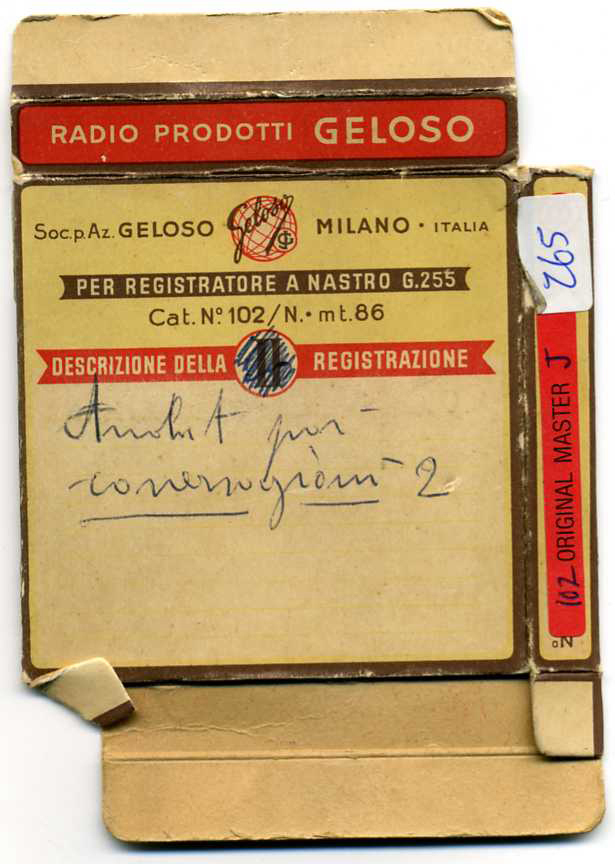 RADIO PRODOTTI GELOSO
Soc.p.Az. GELOSO Geloso MILANO • ITALIA
PER REGISTRATORE A NASTRO G.255
Cat. Nº 102/N. • mt. 86
DESCRIZIONE DELLA II REGISTRAZIONE
2
265
102 ORIGINAL MASTER J
Nº